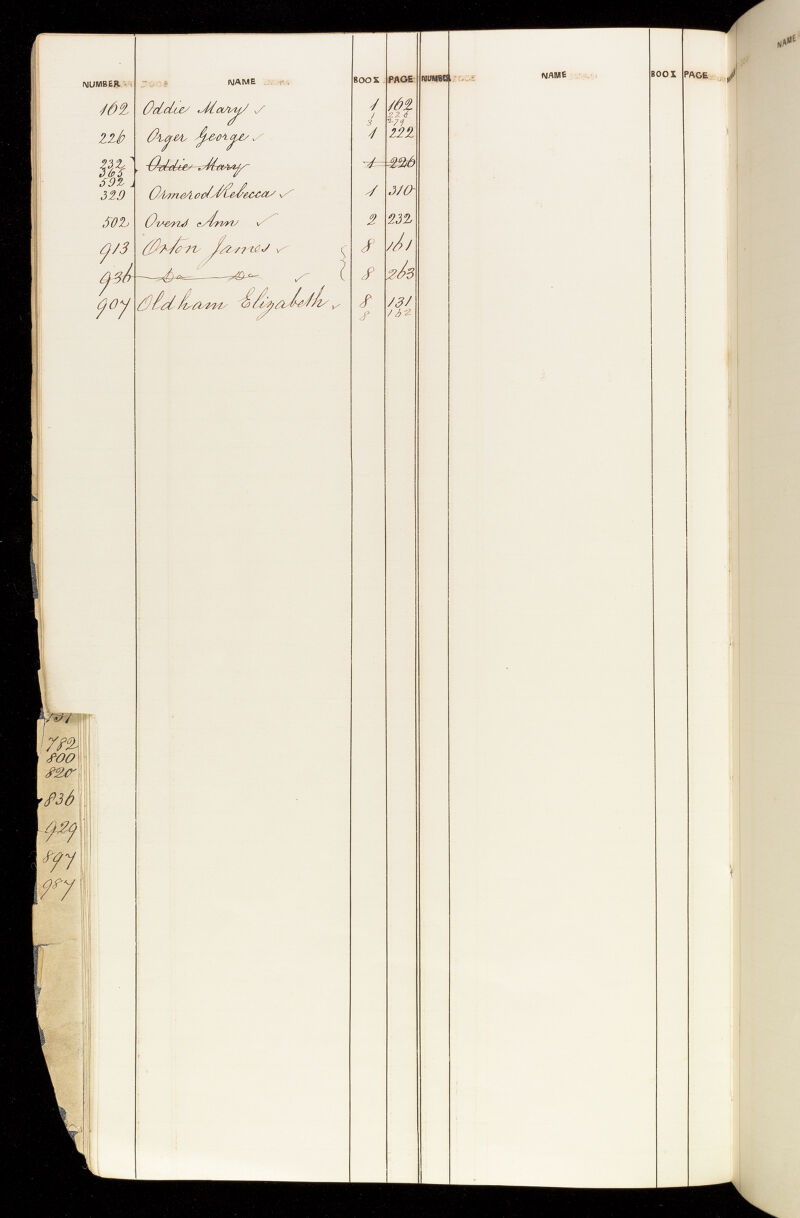 NUMBER NAME BOOK PAGE NUMBER NAME BOOK PAGE
162 Oddie Mary ✓ 1 162
1 226
3 279
226 Orger George ✓ 1 222
232 Oddie Mary 1 226
365
592
329 Ormerod Rebecca ✓ 1 310
502 Ovens Ann ✓ 2 232
913 Orton James ✓ 8 161
936 Do Do ✓ 8 263
907 Oldham Elizabeth ✓ 8 131
8 162
782
800
820
836
929
897
987
NAME